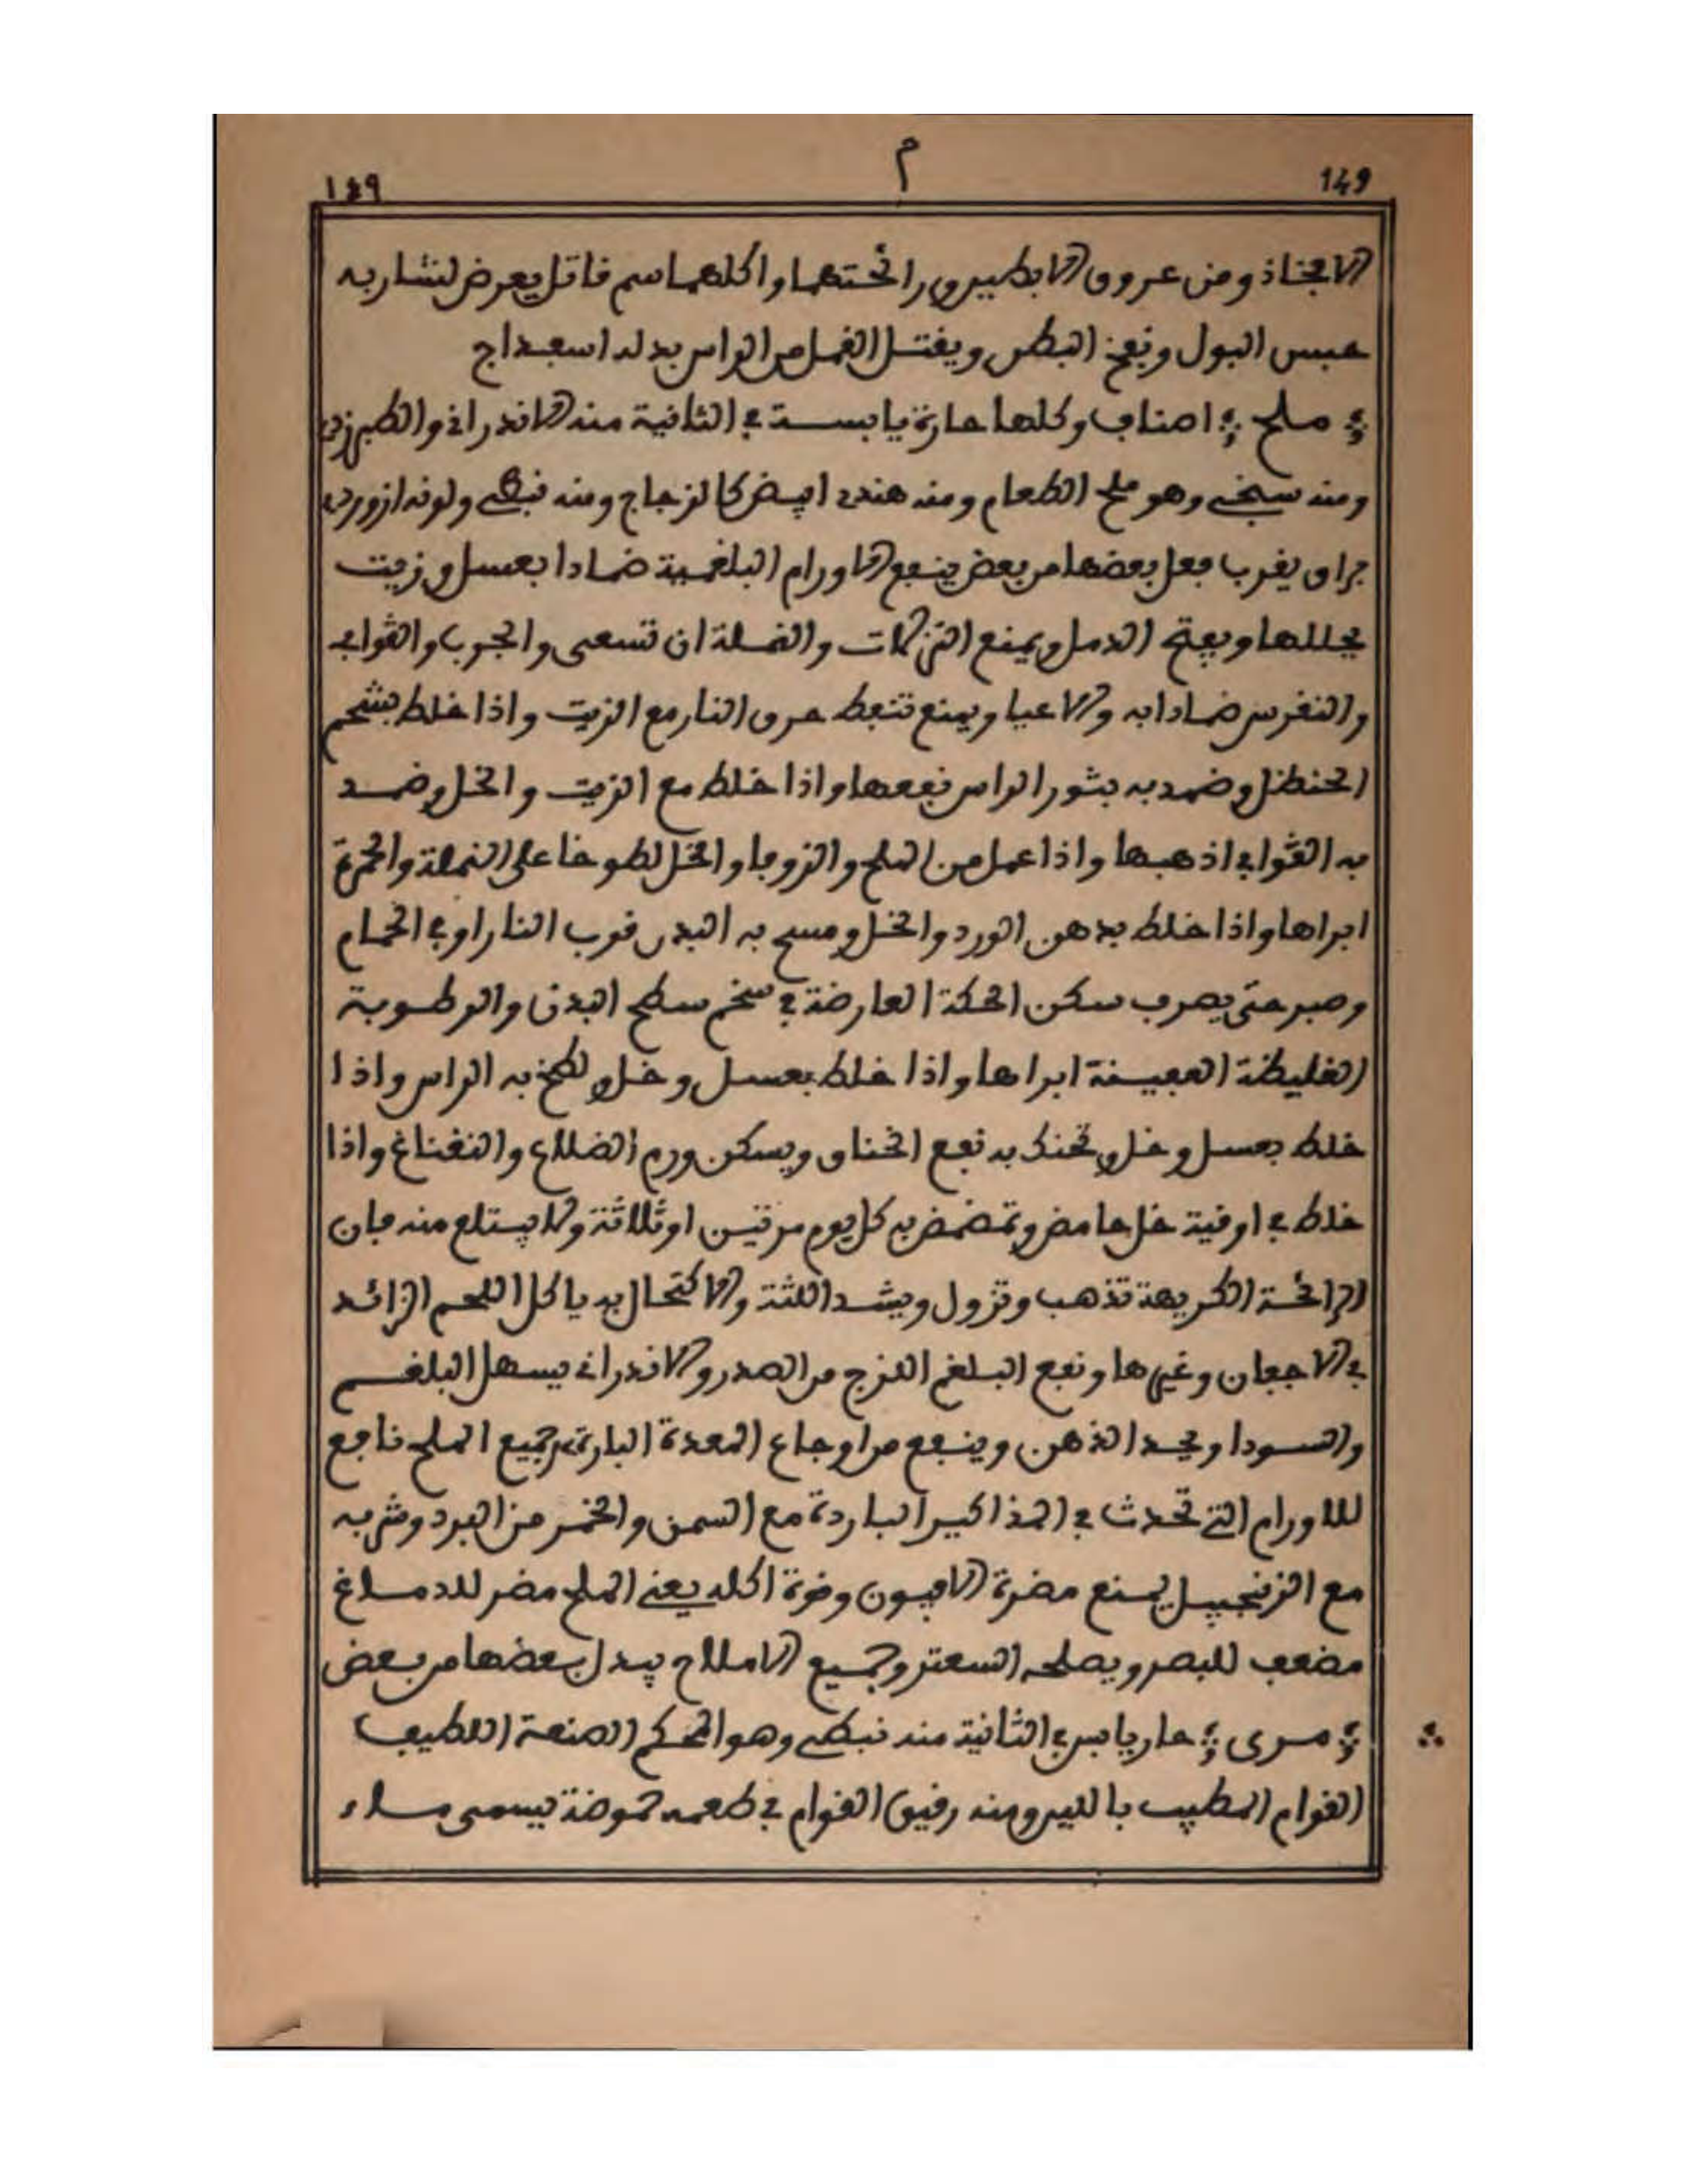 149 م ١٤٩
الافخاذ ومن عروق الابطين ورائحتهما واكلهما سم قاتل يعرض لشاربه
حبس البول ونفخ البطن ويقتل القمل من الراس بدله اسفيداج
ملح اصناف وكلها حارة يابسة في الثانية منه الاندراني والطبرزد
ومنه سبخي وهو ملح الطعام ومنه هندي ابيض كالزجاج ومنه نبطي ولونه ازوردي
براق يقرب فعل بعضها من بعض ينفع الاورام البلغمية ضمادا بعسل وزيت
يحللها ويفتح الدمل ويمنع النزلات والنملة ان تسعى والجرب والقوابي
والنقرس ضمادا به والاعيا ويمنع تنفط حرق النار مع الزيت واذا خلط بشحم
الحنظل وضمد به بثور الراس نفعها واذا خلط مع الزيت والخل وضمد
به القوابي اذهبها واذا عمل من الملح والزوفا والخل لطوخا على النملة والحمرة
ابراها واذا خلط بدهن الورد والخل ومسح به البدن قرب النار او في الحمام
وصبر حتى يعرق سكن الحكة العارضة في سخم سطح البدن والرطوبة
الغليظة العفينة ابراها واذا خلط بعسل وخل ولطخ به الراس واذا
خلط بعسل وخل وتحنك به نفع الخناق ويسكن ورم العضلات والنغناغ واذا
خلط في اوقية خل حامض وتمضمض به كل يوم مرتين او ثلاثة ولا يبتلع منه فان
الرائحة الكريهة تذهب وتزول ويشد اللثة والاكتحال به ياكل اللحم الزائد
في الاجفان وغيرها ونفع البلغم اللزج من الصدر والاندراني يسهل البلغم
والسودا ويحد الذهن وينفع من اوجاع المعدة الباردة جميع الملح نافع
للاورام التي تحدث في المذاكير الباردة مع السمن والخمر من البرد وشربه
مع الزنجبيل يمنع مضرة الافيون وقوة اكله يعني الملح مضر للدماغ
مضعف للبصر ويصلحه السعتر وجميع الاملاح يبدل بعضها من بعض
مرى حار يابس في الثانية منه نبطي وهو المحكم الصنعة اللطيف
القوام المطيب بالبير ومنه رقيق القوام في طعمه حموضة يسمى ماء